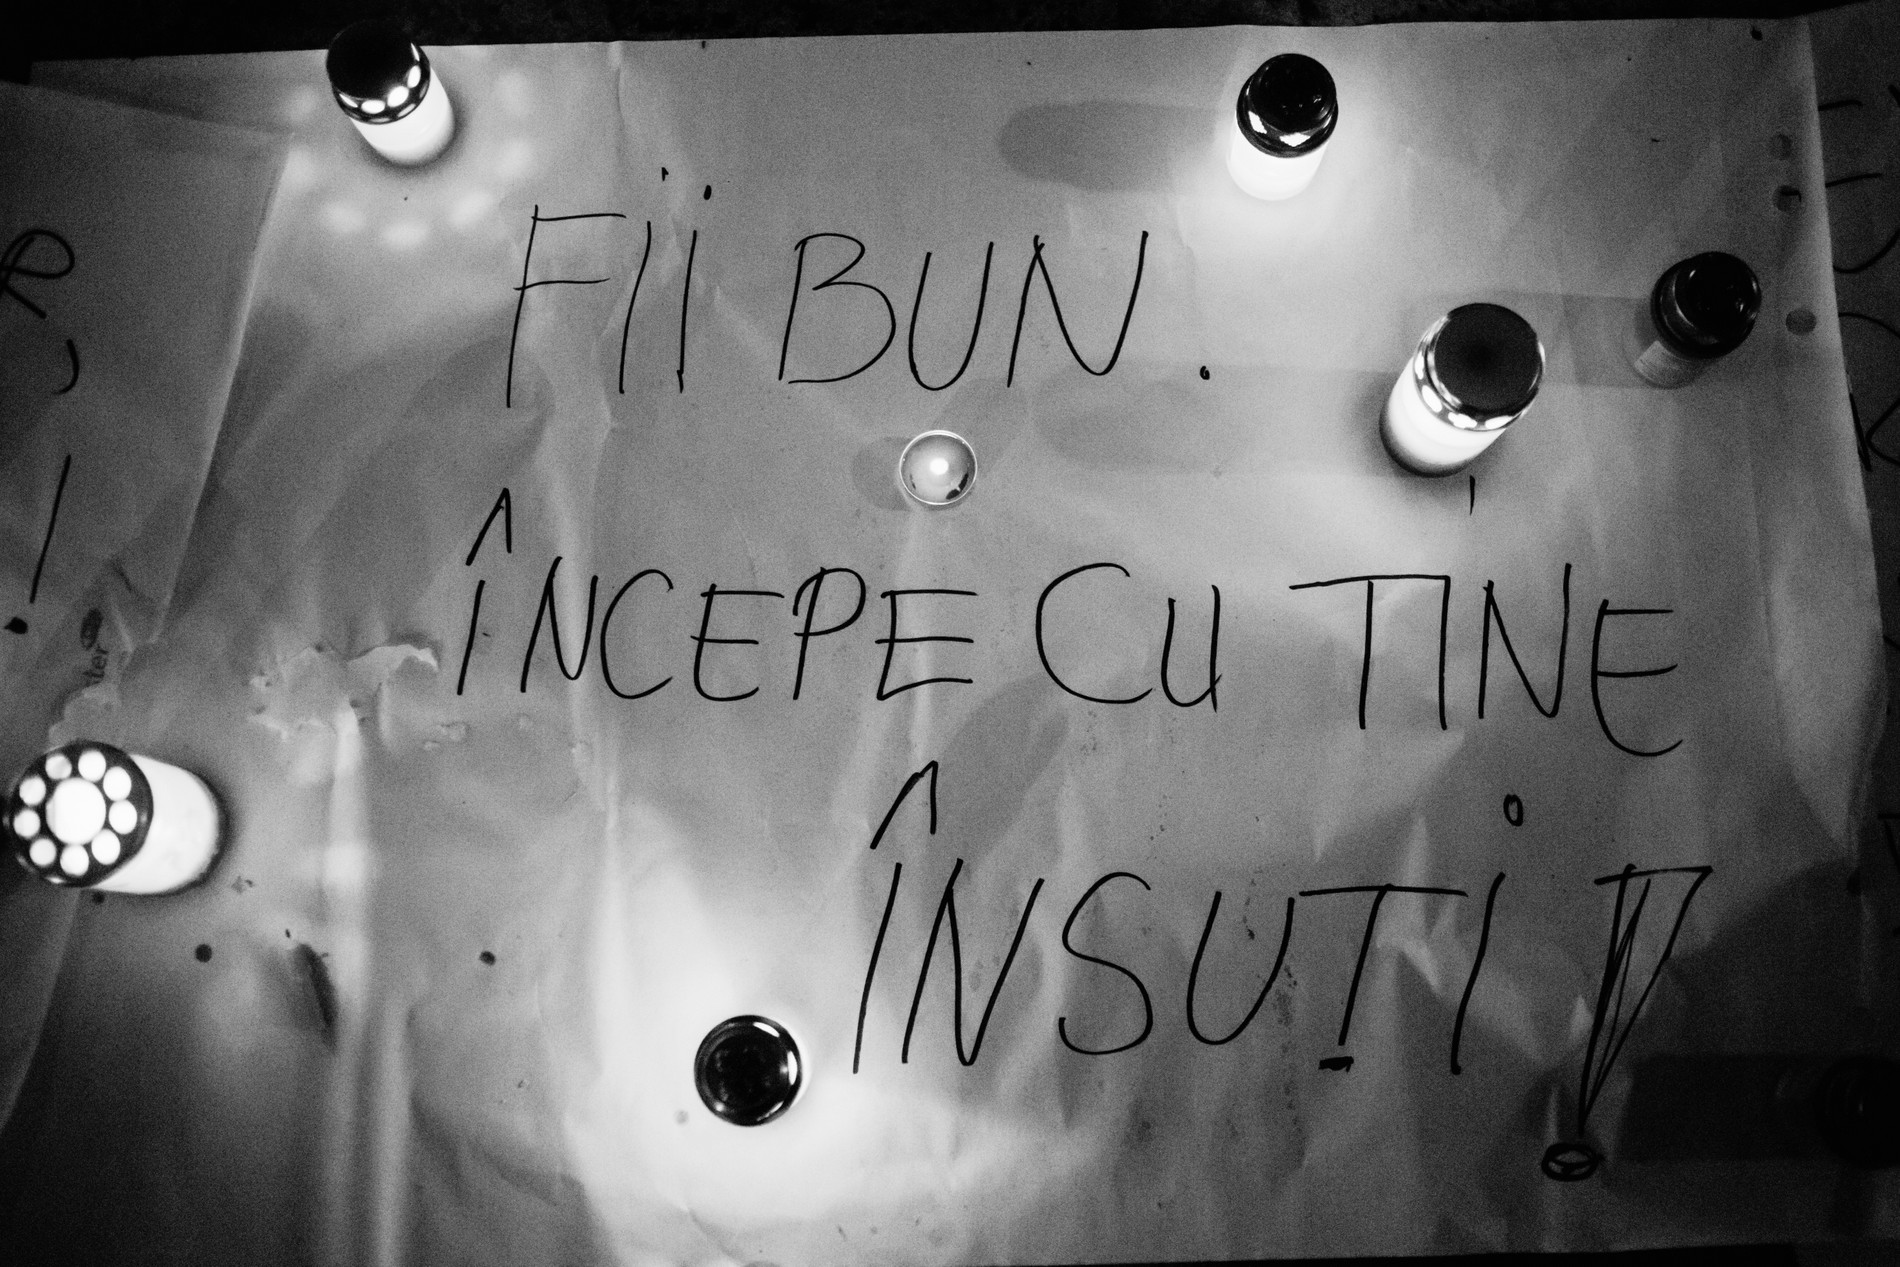 FII BUN.
ÎNCEPE CU TINE
ÎNSUȚI!